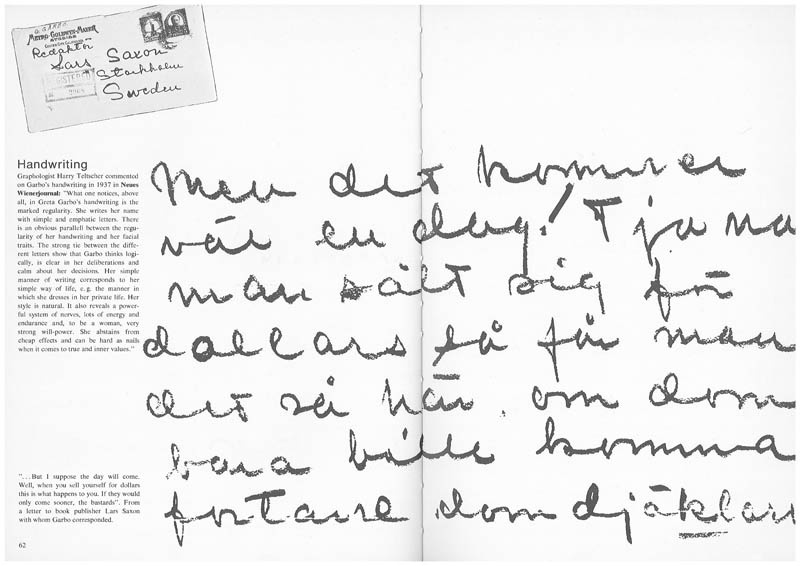 G. GARBO
METRO-GOLDWYN-MAYER
STUDIOS
CULVER CITY, CALIFORNIA
Redaktör
Lars Saxon
Stockholm
Sweden
REGISTERED
Handwriting
Graphologist Harry Teltscher commented
on Garbo's handwriting in 1937 in Neues
Wienerjournal: "What one notices, above
all, in Greta Garbo's handwriting is the
marked regularity. She writes her name
with simple and emphatic letters. There
is an obvious parallell between the regu-
larity of her handwriting and her facial
traits. The strong tie between the diffe-
rent letters show that Garbo thinks logi-
cally, is clear in her deliberations and
calm about her decisions. Her simple
manner of writing corresponds to her
simple way of life, e.g. the manner in
which she dresses in her private life. Her
style is natural. It also reveals a power-
ful system of nerves, lots of energy and
endurance and, to be a woman, very
strong will-power. She abstains from
cheap effects and can be hard as nails
when it comes to true and inner values."
Men det kommer
väl en dag! Tja na
man sält sig för
dollars så får man
det så här, om dom
bara ville komma
fortare dom djäklar
"...But I suppose the day will come.
Well, when you sell yourself for dollars
this is what happens to you. If they would
only come sooner, the bastards". From
a letter to book publisher Lars Saxon
with whom Garbo corresponded.
62